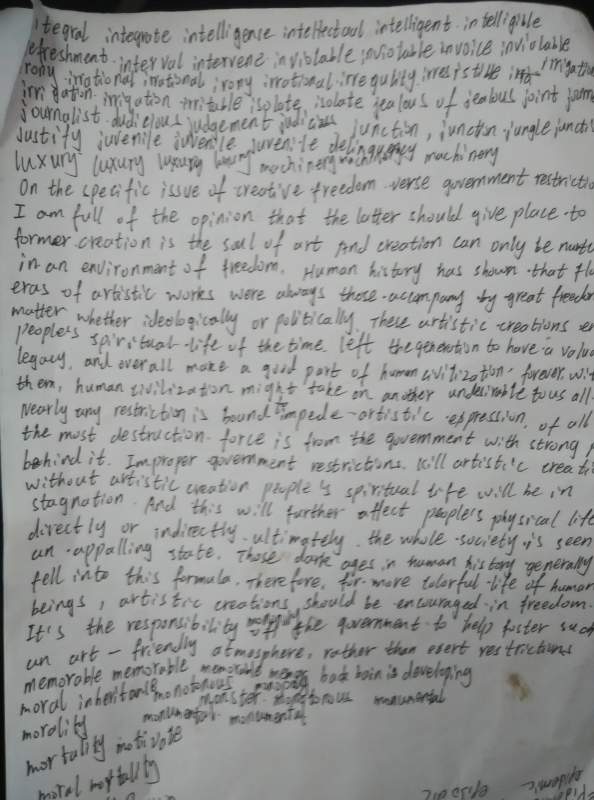 integral integrate intelligense intellectaul intelligent intelligible
refreshment interval intervene inviolable inviolable invoice inviolable
irony irrational irrational irony irrational irregubly irresistible irrigation
irrigation irrigation irritable isolate isolate jealous of jealous joint
journalist judicious judgement judicious junction, junction jungle
justify juvenile juvenile juvenile delinquency
luxury luxury luxury luxury machinery machinery machinery
On the specific issue of creative freedom verse government
I am full of the opinion that the latter should give place to
former creation is the soul of art And creation can only be
in an environment of freedom. Human history has shown that
eras of artistic works were always those accompany by great
matter whether ideologically or politically. These artistic creations
people's spiritual life of the time. left the generation to have a
legacy, and overall make a good part of human civilization forever.
them, human civilization might take on another undesirable to us all.
Nearly any restriction is bound to impede artistic expression, of all
the most destruction force is from the government with strong
behind it. Improper government restrictions. kill artistic
without artistic creation people's spiritual life will be in
stagnation. And this will further affect people's physical life
directly or indirectly. ultimately the whole society is seen
an appalling state. Those dark ages in human history generally
fell into this formula. Therefore, for more colorful life of human
beings, artistic creations should be encouraged in freedom.
It's the responsibility of the government to help foster such
an art - friendly atmosphere, rather than exert restrictions
memorable memorable memorable back bain is developing
moral inheritance monotonous monopoly
monster monotonous monumental
morality monumental monumental
mortality motivate
moral mortality
epidemic episodic